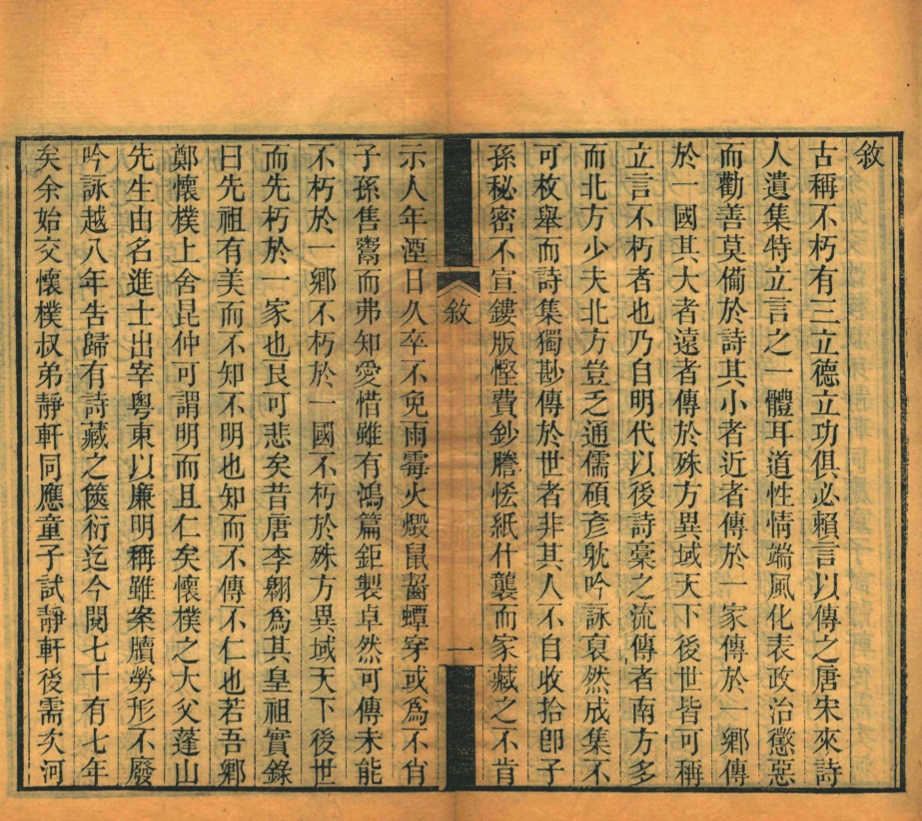 敘
古稱不朽有三立德立功俱必賴言以傳之唐宋來詩
人遺集特立言之一體耳道性情端風化表政治懲惡
而勸善莫備於詩其小者近者傳於一家傳於一鄉傳
於一國其大者遠者傳於殊方異域天下後世皆可稱
立言不朽者也乃自明代以後詩稾之流傳者南方多
而北方少夫北方豈乏通儒碩彥躭吟詠裒然成集不
可枚舉而詩集獨尠傳於世者非其人不自收拾卽子
孫秘密不宣鏤版慳費鈔謄恡紙什襲而家藏之不肯
敘
一
示人年湮日久卒不免雨霉火燬鼠齧蟫穿或為不肖
子孫售鬻而弗知愛惜雖有鴻篇鉅製卓然可傳未能
不朽於一鄉不朽於一國不朽於殊方異域天下後世
而先朽於一家也良可悲矣昔唐李翱為其皇祖實錄
曰先祖有美而不知不明也知而不傳不仁也若吾鄉
鄭懷樸上舍昆仲可謂明而且仁矣懷樸之大父蓬山
先生由名進士出宰粵東以廉明稱雖案牘勞形不廢
吟詠越八年告歸有詩藏之篋衍迄今閱七十有七年
矣余始交懷樸叔弟靜軒同應童子試靜軒後需次河